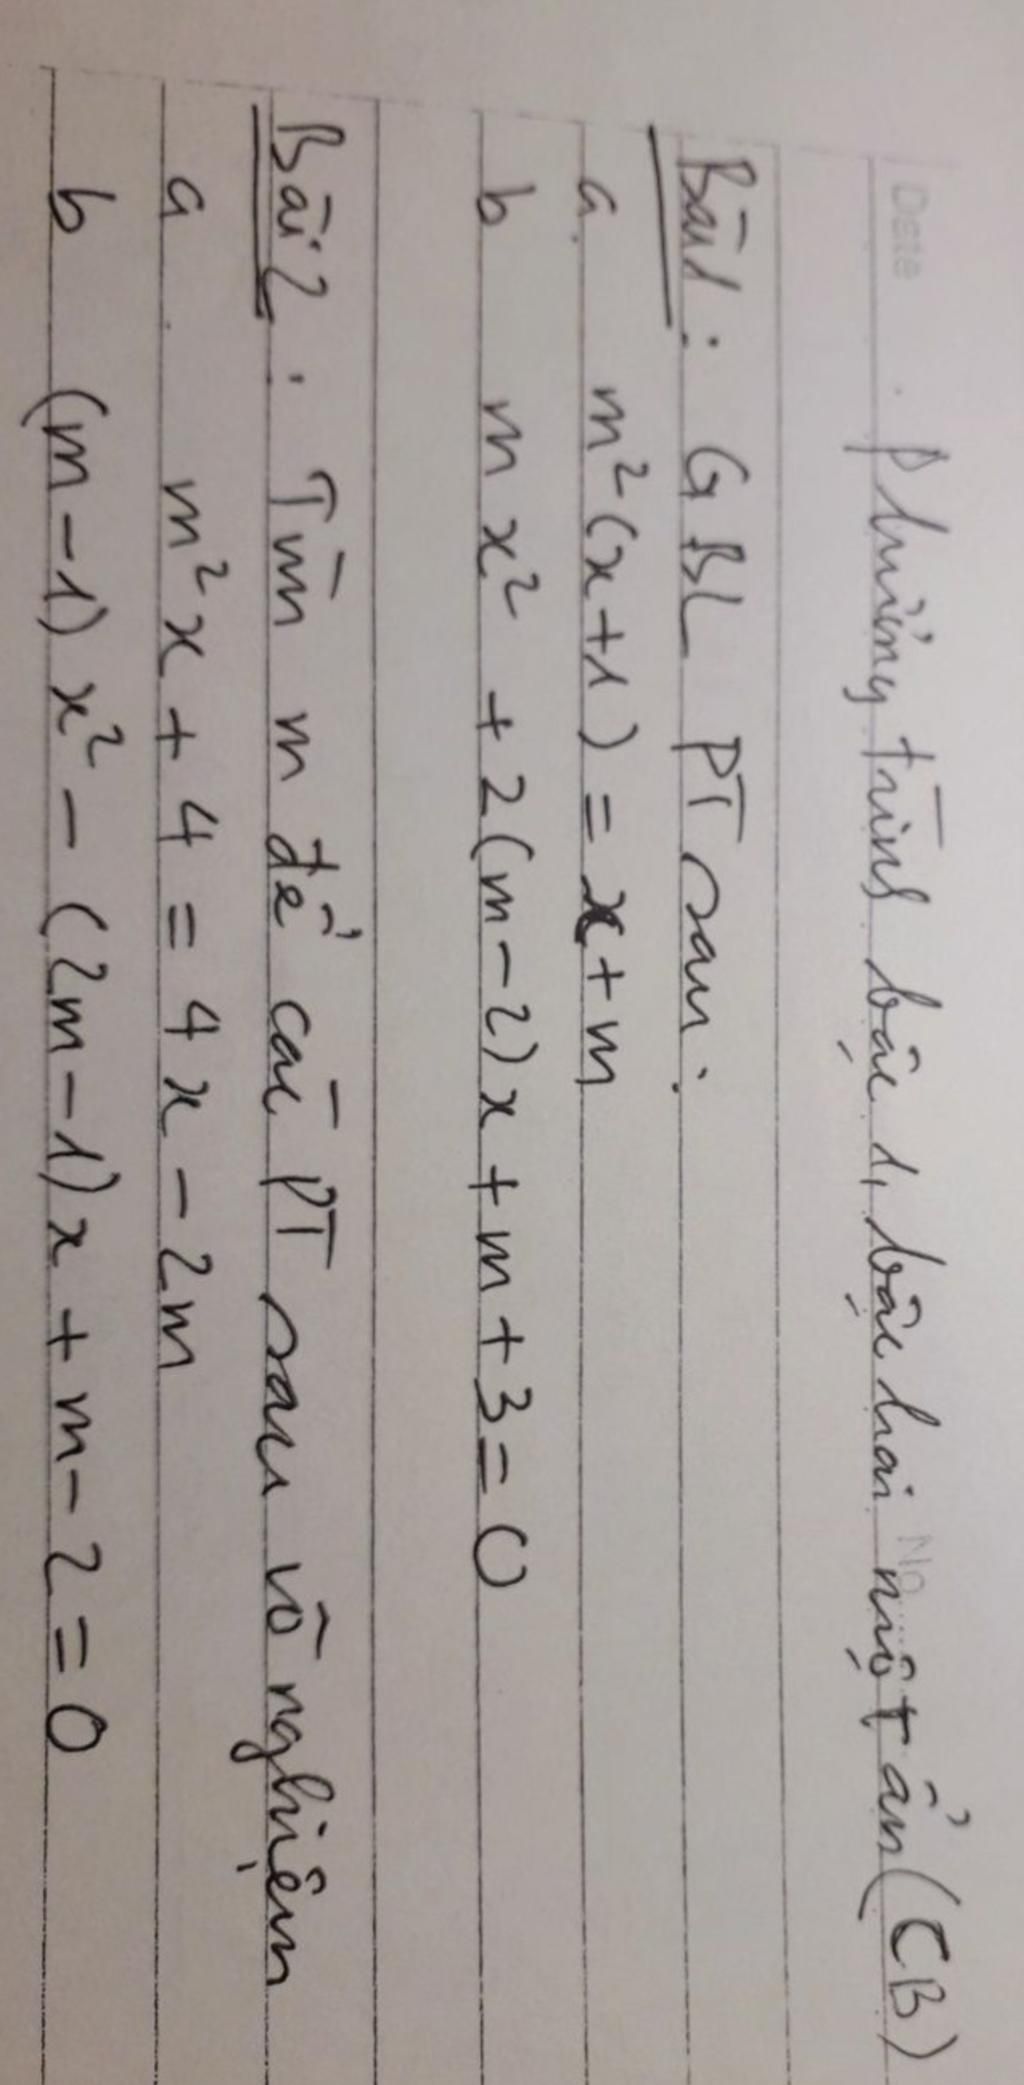 Date No
Phương trình bậc 1, bậc hai một ẩn (CB)
Bài 1: GBL PT sau:
a. m²(x+1) = x+m
b mx² + 2(m-2)x + m + 3 = 0
Bài 2: Tìm m để các PT sau vô nghiệm
a. m²x + 4 = 4x - 2m
b (m-1)x² - (2m-1)x + m - 2 = 0